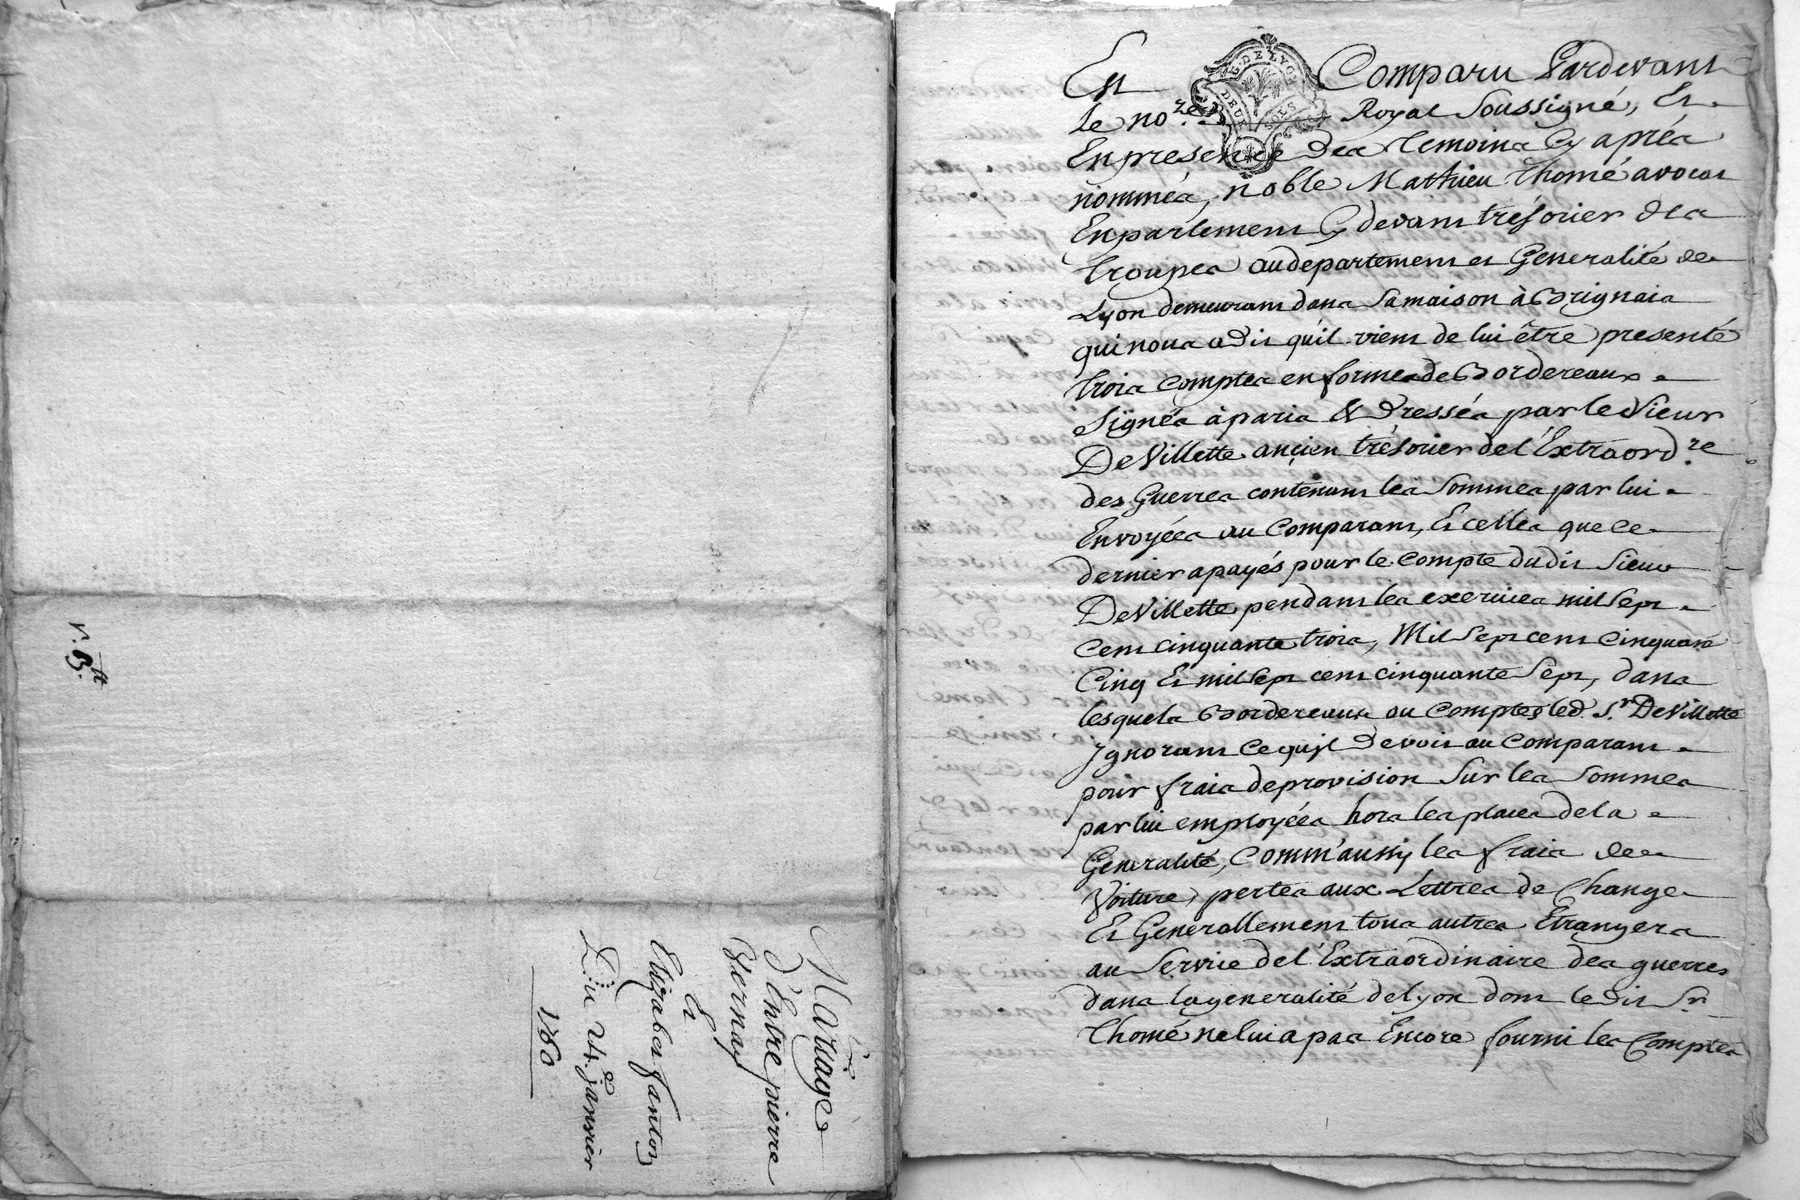 Mariage
d'Entre pierre
Gernay
Et
Elizabet fanton
Du 24.e janvier
1760
r. 13.ft
Est Comparu Pardevant
Le no.re Royal Soussigné, Et
En presence des temoins Cy aprés
nommés, noble Mathieu Thomé avocat
En parlement Cy devant trésorier des
troupes au departement et Generalité de
Lyon demeurant dans Sa maison à Brignais
qui nous a dit qu'il vient de lui être presenté
trois comptes en formes de Bordereaux
Signés à paris & dressés par le Sieur
De Villette ancien trésorier de l'Extraord.re
des Guerres contenant les Sommes par lui
Envoyées au Comparant, Et celles que ce
dernier a payés pour le compte du dit Sieur
De Villette, pendant les exercices mil Sept
Cent cinquante trois, Mil Sept cent cinquante
Cinq Et mil Sept cent cinquante Sept, dans
lesquels Bordereaux ou Comptes led. S.r De Villette
Ignorant ce qu'jl devoit au Comparant
pour frais de provision Sur les Sommes
par lui employées hors les places de la
Generalité, Comm'aussy les frais de
Voiture, pertes aux Lettres de Change
Et Generallement tous autres Etrangers
au Service de l'Extraordinaire des guerres
dans la generalité de Lyon dont le dit Sr.
Thomé ne lui a pas Encore fourni les Comptes
G. DE LYON
DEUX SOLS